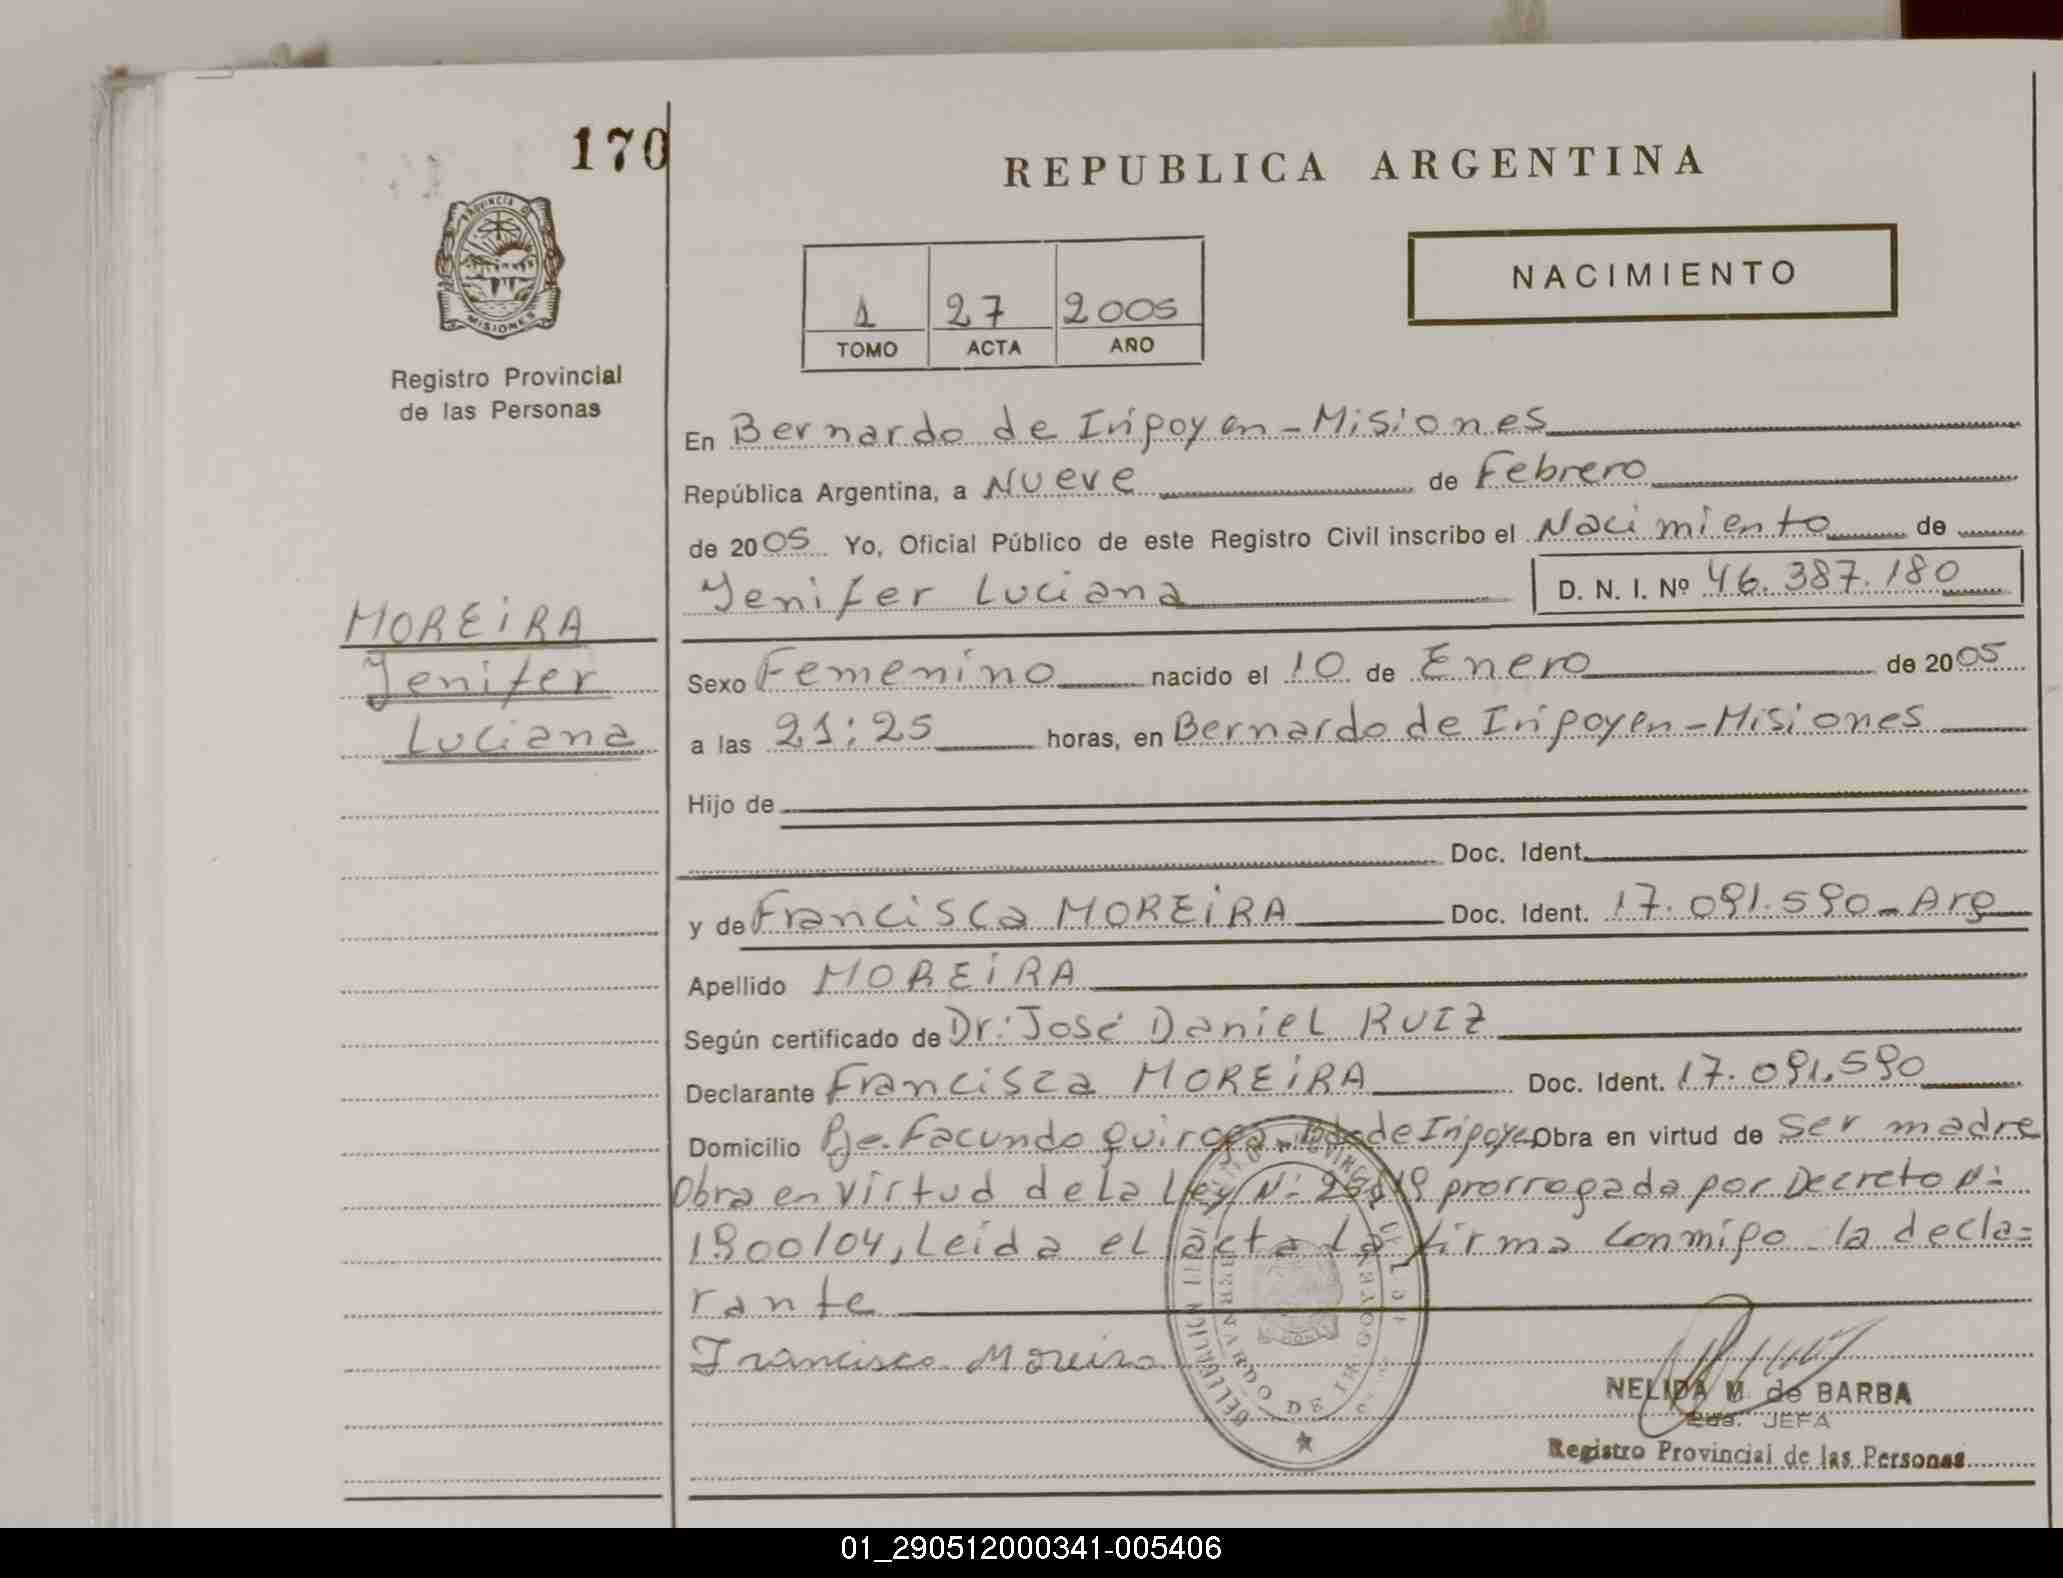 170
REPUBLICA ARGENTINA
PROVINCIA D
MISIONES
NACIMIENTO
1 27 2005
TOMO ACTA AÑO
Registro Provincial
de las Personas
En Bernardo de Iripoyen - Misiones
República Argentina, a Nueve de Febrero
de 2005 Yo, Oficial Público de este Registro Civil inscribo el Nacimiento de
Yenifer Luciana D. N. I. Nº 46.387.180
MOREIRA
Yenifer
Luciana
Sexo Femenino nacido el 10 de Enero de 2005
a las 21:25 horas, en Bernardo de Iripoyen - Misiones
Hijo de
Doc. Ident.
y de Francisca MOREIRA Doc. Ident. 17.091.590 - Arg
Apellido MOREIRA
Según certificado de Dr: José Daniel RUIZ
Declarante Francisca MOREIRA Doc. Ident. 17.091.590
Domicilio Pje. Facundo Quiroga Bdo de Iripoyen Obra en virtud de ser madre
Obra en virtud de la Ley Nº prorrogada por Decreto Nº
1900/04, Leida el acta la firma conmigo la decla=
rante
Francisca Moreira
BERNARDO DE
NELIDA M. de BARBA
JEFA
Registro Provincial de las Personas
01_290512000341-005406